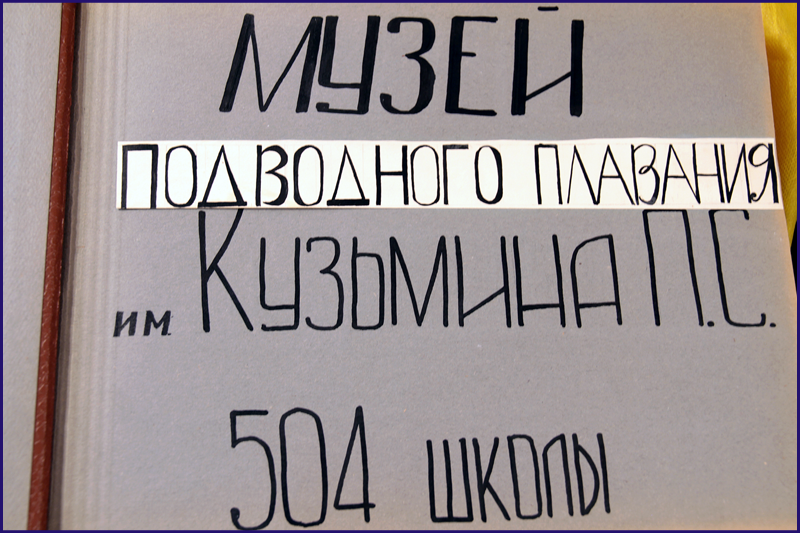 МУЗЕЙ
ПОДВОДНОГО ПЛАВАНИЯ
им. Кузьмина П.С.
504 школы